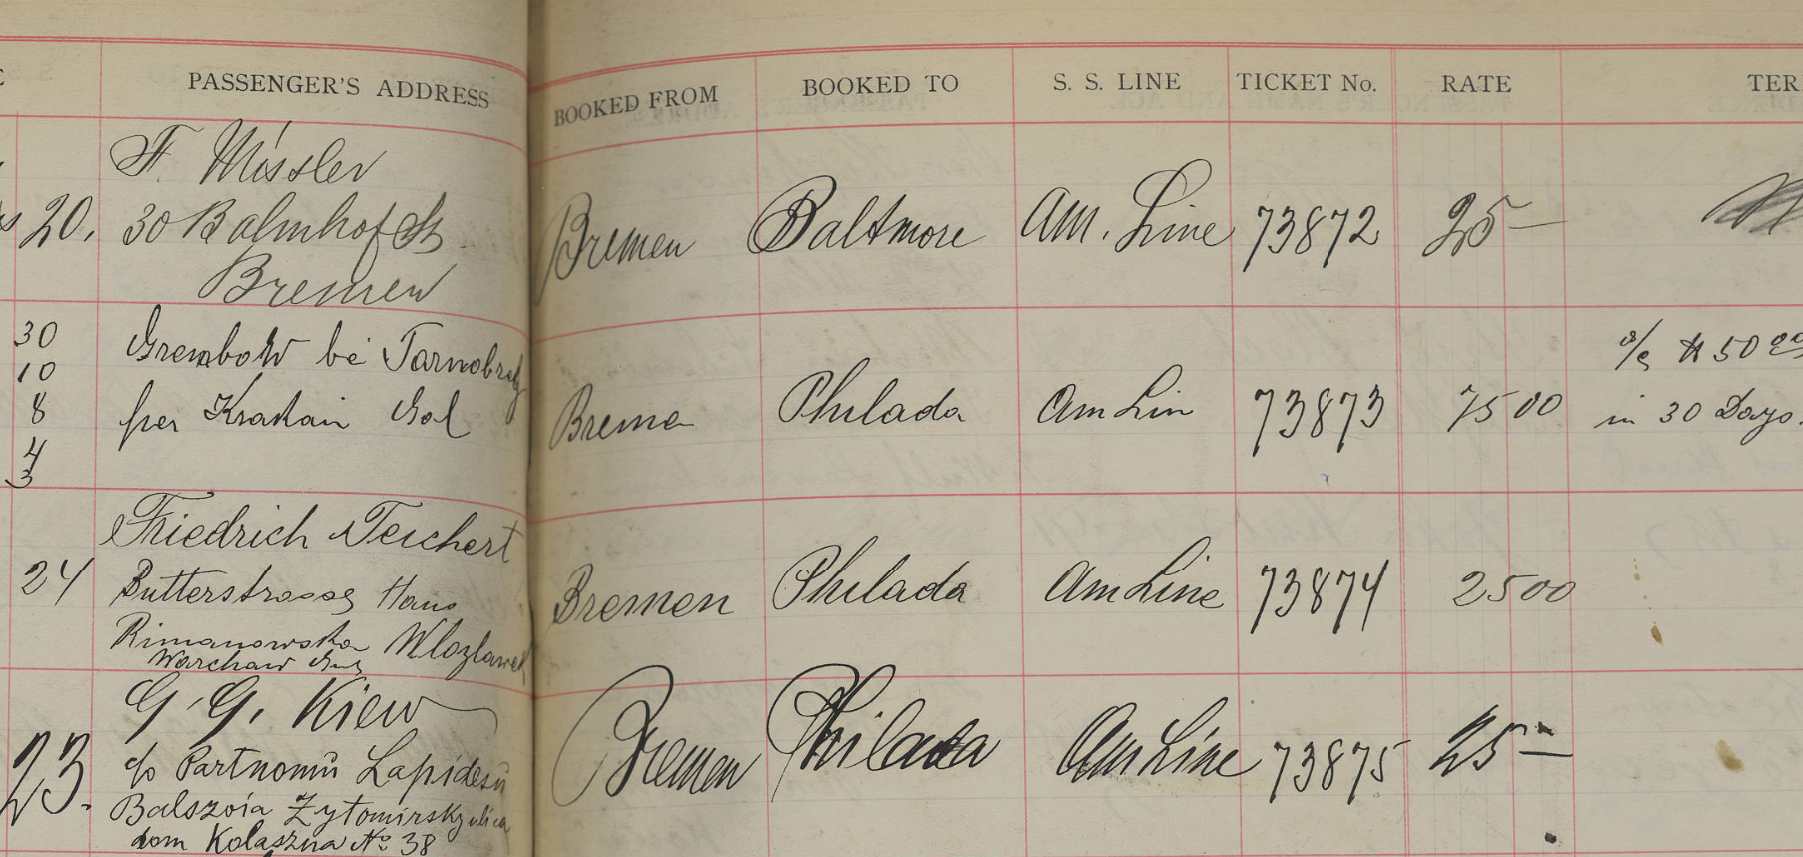 PASSENGER'S ADDRESS BOOKED FROM BOOKED TO S. S. LINE TICKET No. RATE TER
20. F. Missler
30 Bahnhofstr
Bremen
Bremen Baltmore Am. Line 73872 25 —
30
10
8
4
3
Grembow bei Tarnobrzeg
per Krakau Gal
Breme Philada Am Lin 73873 75 00
a/c $ 50 00
in 30 Days.
24 Friedrich Teichert
Butterstrasse Haus
Rimanowska Wlozlawek
Warchaw
Bremen Philada Am Line 73874 25 00
23. G. G. Kiew
c/o Partnomŭ Lapidesŭ
Balszoia Zytomirsky ulica
dom Kolaszna No 38
Bremen Philada Am Line 73875 25 —